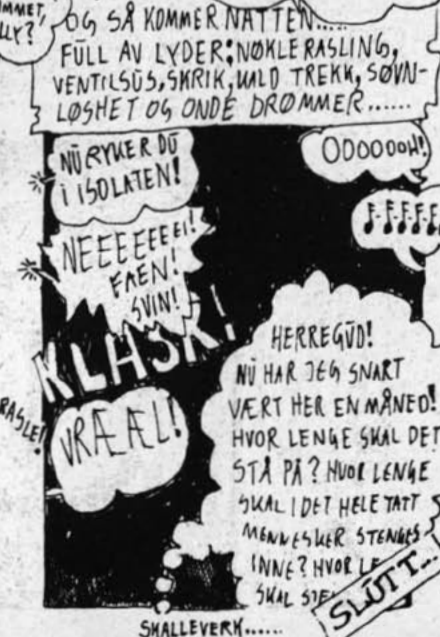 MMET,
LLY?
OG SÅ KOMMER NATTEN.....
FÜLL AV LYDER: NØKLERASLING,
VENTILSÜS, SKRIK, KALD TREKK, SØVN-
LØSHET OG ONDE DRØMMER......
NÜ RYKER DÜ
I ISOLATEN!
OOOOOOH!
NEEEEEEEI!
FAEN!
SVIN!
F-F-F-F-F
KLASK!
RASLE!
VRÆÆL!
HERREGÜD!
NÜ HAR JEG SNART
VÆRT HER EN MÅNED!
HVOR LENGE SKAL DET
STÅ PÅ? HVOR LENGE
SKAL I DET HELE TATT
MENNESKER STENGES
INNE? HVOR LE
SKAL
SLÜTT...
SKALLEVERK......